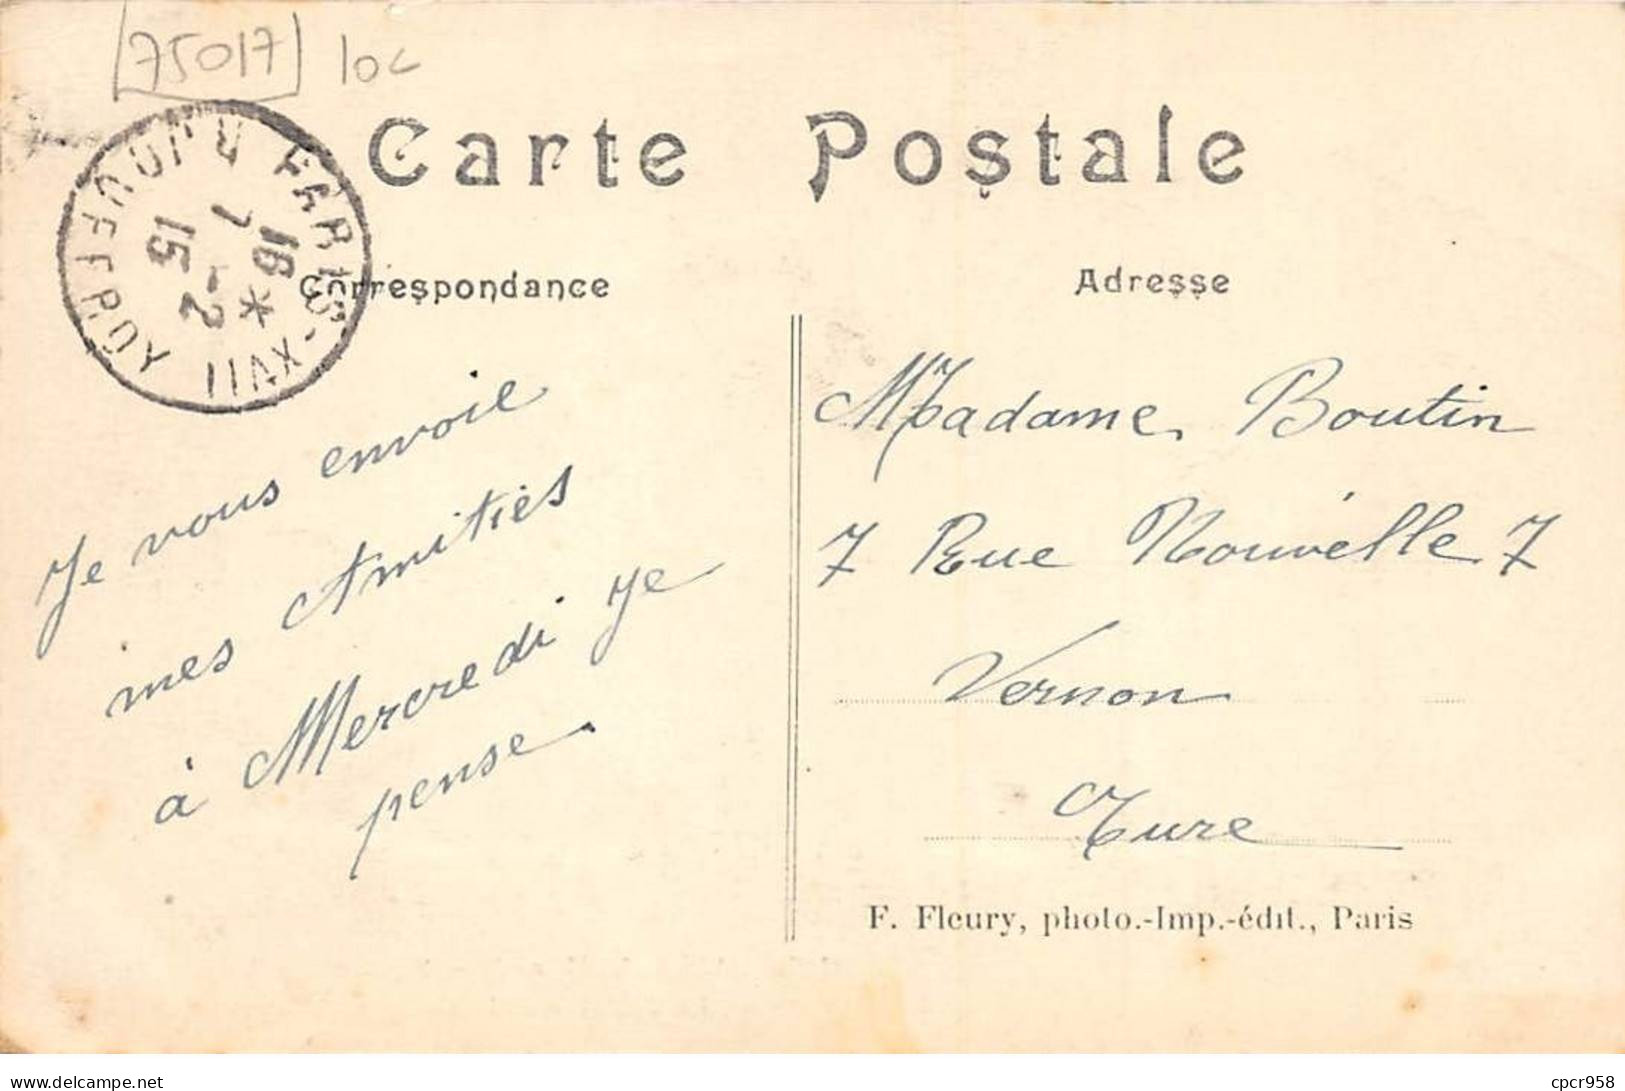 75017 10c
Carte Postale
PARIS-XVII
R. JOUFFROY
16 *
7 - 2
15
Correspondance
Adresse
Je vous envoie
mes Amitiés
à Mercredi je
pense.
Madame Boutin
7 Rue Nouvelle 7
Vernon
Eure
F. Fleury, photo.-Imp.-édit., Paris
www.delcampe.net
cpcr958